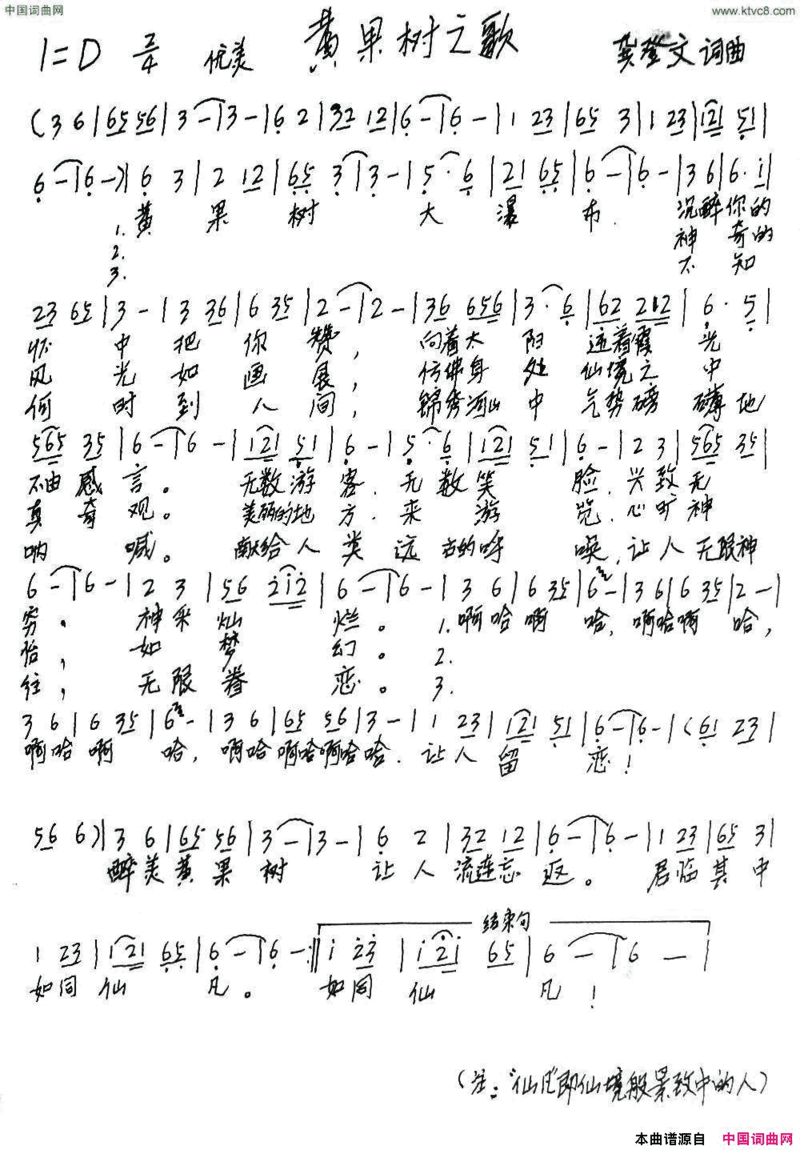 中国词曲网
www.ktvc8.com
1=D 2/4 优美 黄果树之歌 龚登文词曲
(3 6|65 56|3 -|3 -|6 2|32 12|6 -|6 -|1 23|65 3|1 23|121 51|
6 -|6 -)|6 3|2 12|65 3|3 -|5· 6|21 65|6 -|6 -|3 6|6· i|
1. 黄 果 树 大 瀑 布. 沉醉你的
2. 神 奇的
3. 不 知
23 65|3 -|3 36|6 35|2 -|2 -|36 656|3· 6|62 212|6· 5|
怀 中 把 你 赞, 向着太 阳 迎着霞 光
风 光 如 画 展, 仿佛身 处 仙境之 中
何 时 到 人 间, 锦秀河山 中 气势磅 礴地
565 35|6 -|6 -|121 51|6 -|5· 6|121 51|6 -|2 3|565 35|
不由 感 言。 无数 游 客. 无 数 笑 脸. 兴致 无
真 奇 观。 美丽的地 方. 来 游 览. 心旷 神
呐 喊。 献给 人 类 远 古的呼 唤, 让 人 无限神
6 -|6 -|2 3|56 2i2|6 -|6 -|3 6|6 35|6 -|3 6|6 35|2 -|
穷。 神采 灿 烂。 1. 啊哈啊 哈, 啊哈啊 哈,
怡, 如 梦 幻。 2.
往, 无限 眷 恋。 3.
3 6|6 35|6 -|3 6|65 56|3 -|1 23|121 51|6 -|6 -|(61 23|
啊哈 啊 哈, 啊哈 啊哈啊哈 哈. 让人 留 恋!
56 6)|3 6|65 56|3 -|3 -|6 2|32 12|6 -|6 -|1 23|65 3|
醉美 黄 果 树 让 人 流连忘 返。 君临 其 中
结束句
1 23|121 65|6 -|6 -:‖i 23|i2i 65|6 -|6 -|
如同 仙 凡。 如同 仙 凡!
(注:“仙凡”即仙境般景致中的人)
本曲谱源自 中国词曲网